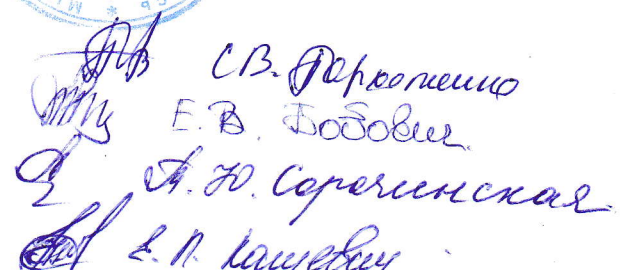 С.В. Пархоменко
Е.В. Бобович
А.Ю. Сорочинская
Е.П. Кашевич